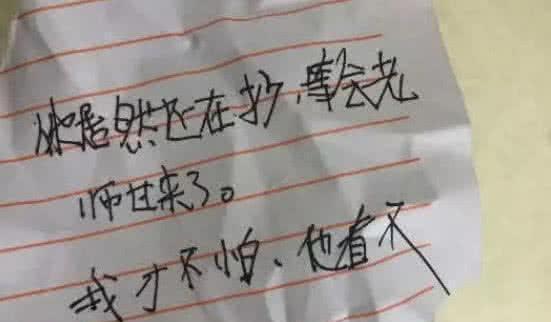 居然还在抄,等会老
师进来了。
我才不怕、他看不